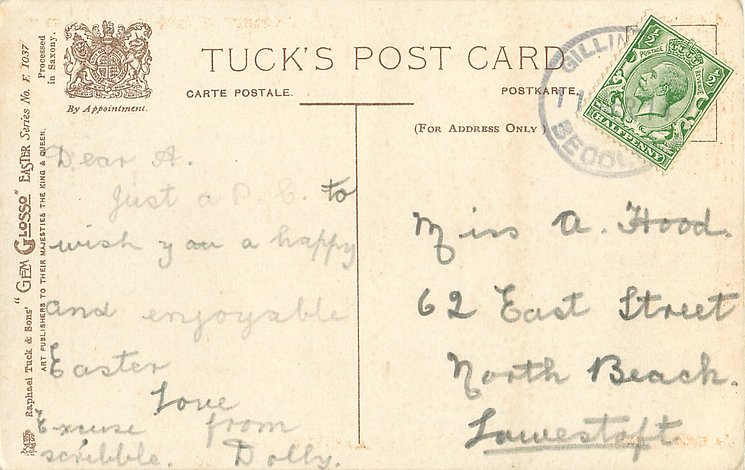 TUCK'S POST CARD
CARTE POSTALE.
POSTKARTE.
(FOR ADDRESS ONLY)
By Appointment.
Processed
in Saxony.
Raphael Tuck & Sons' "GEM GLOSSO" EASTER Series No. E 1037
ART PUBLISHERS TO THEIR MAJESTIES THE KING & QUEEN.
GILLIN
BECCL
POSTAGE
REVENUE
HALFPENNY
Dear A.
Just a P.C. to
wish you a happy
and enjoyable
Easter
Love
from
Dolly.
Excuse
scribble.
Miss A. Hood.
62 East Street
North Beach.
Lowestoft